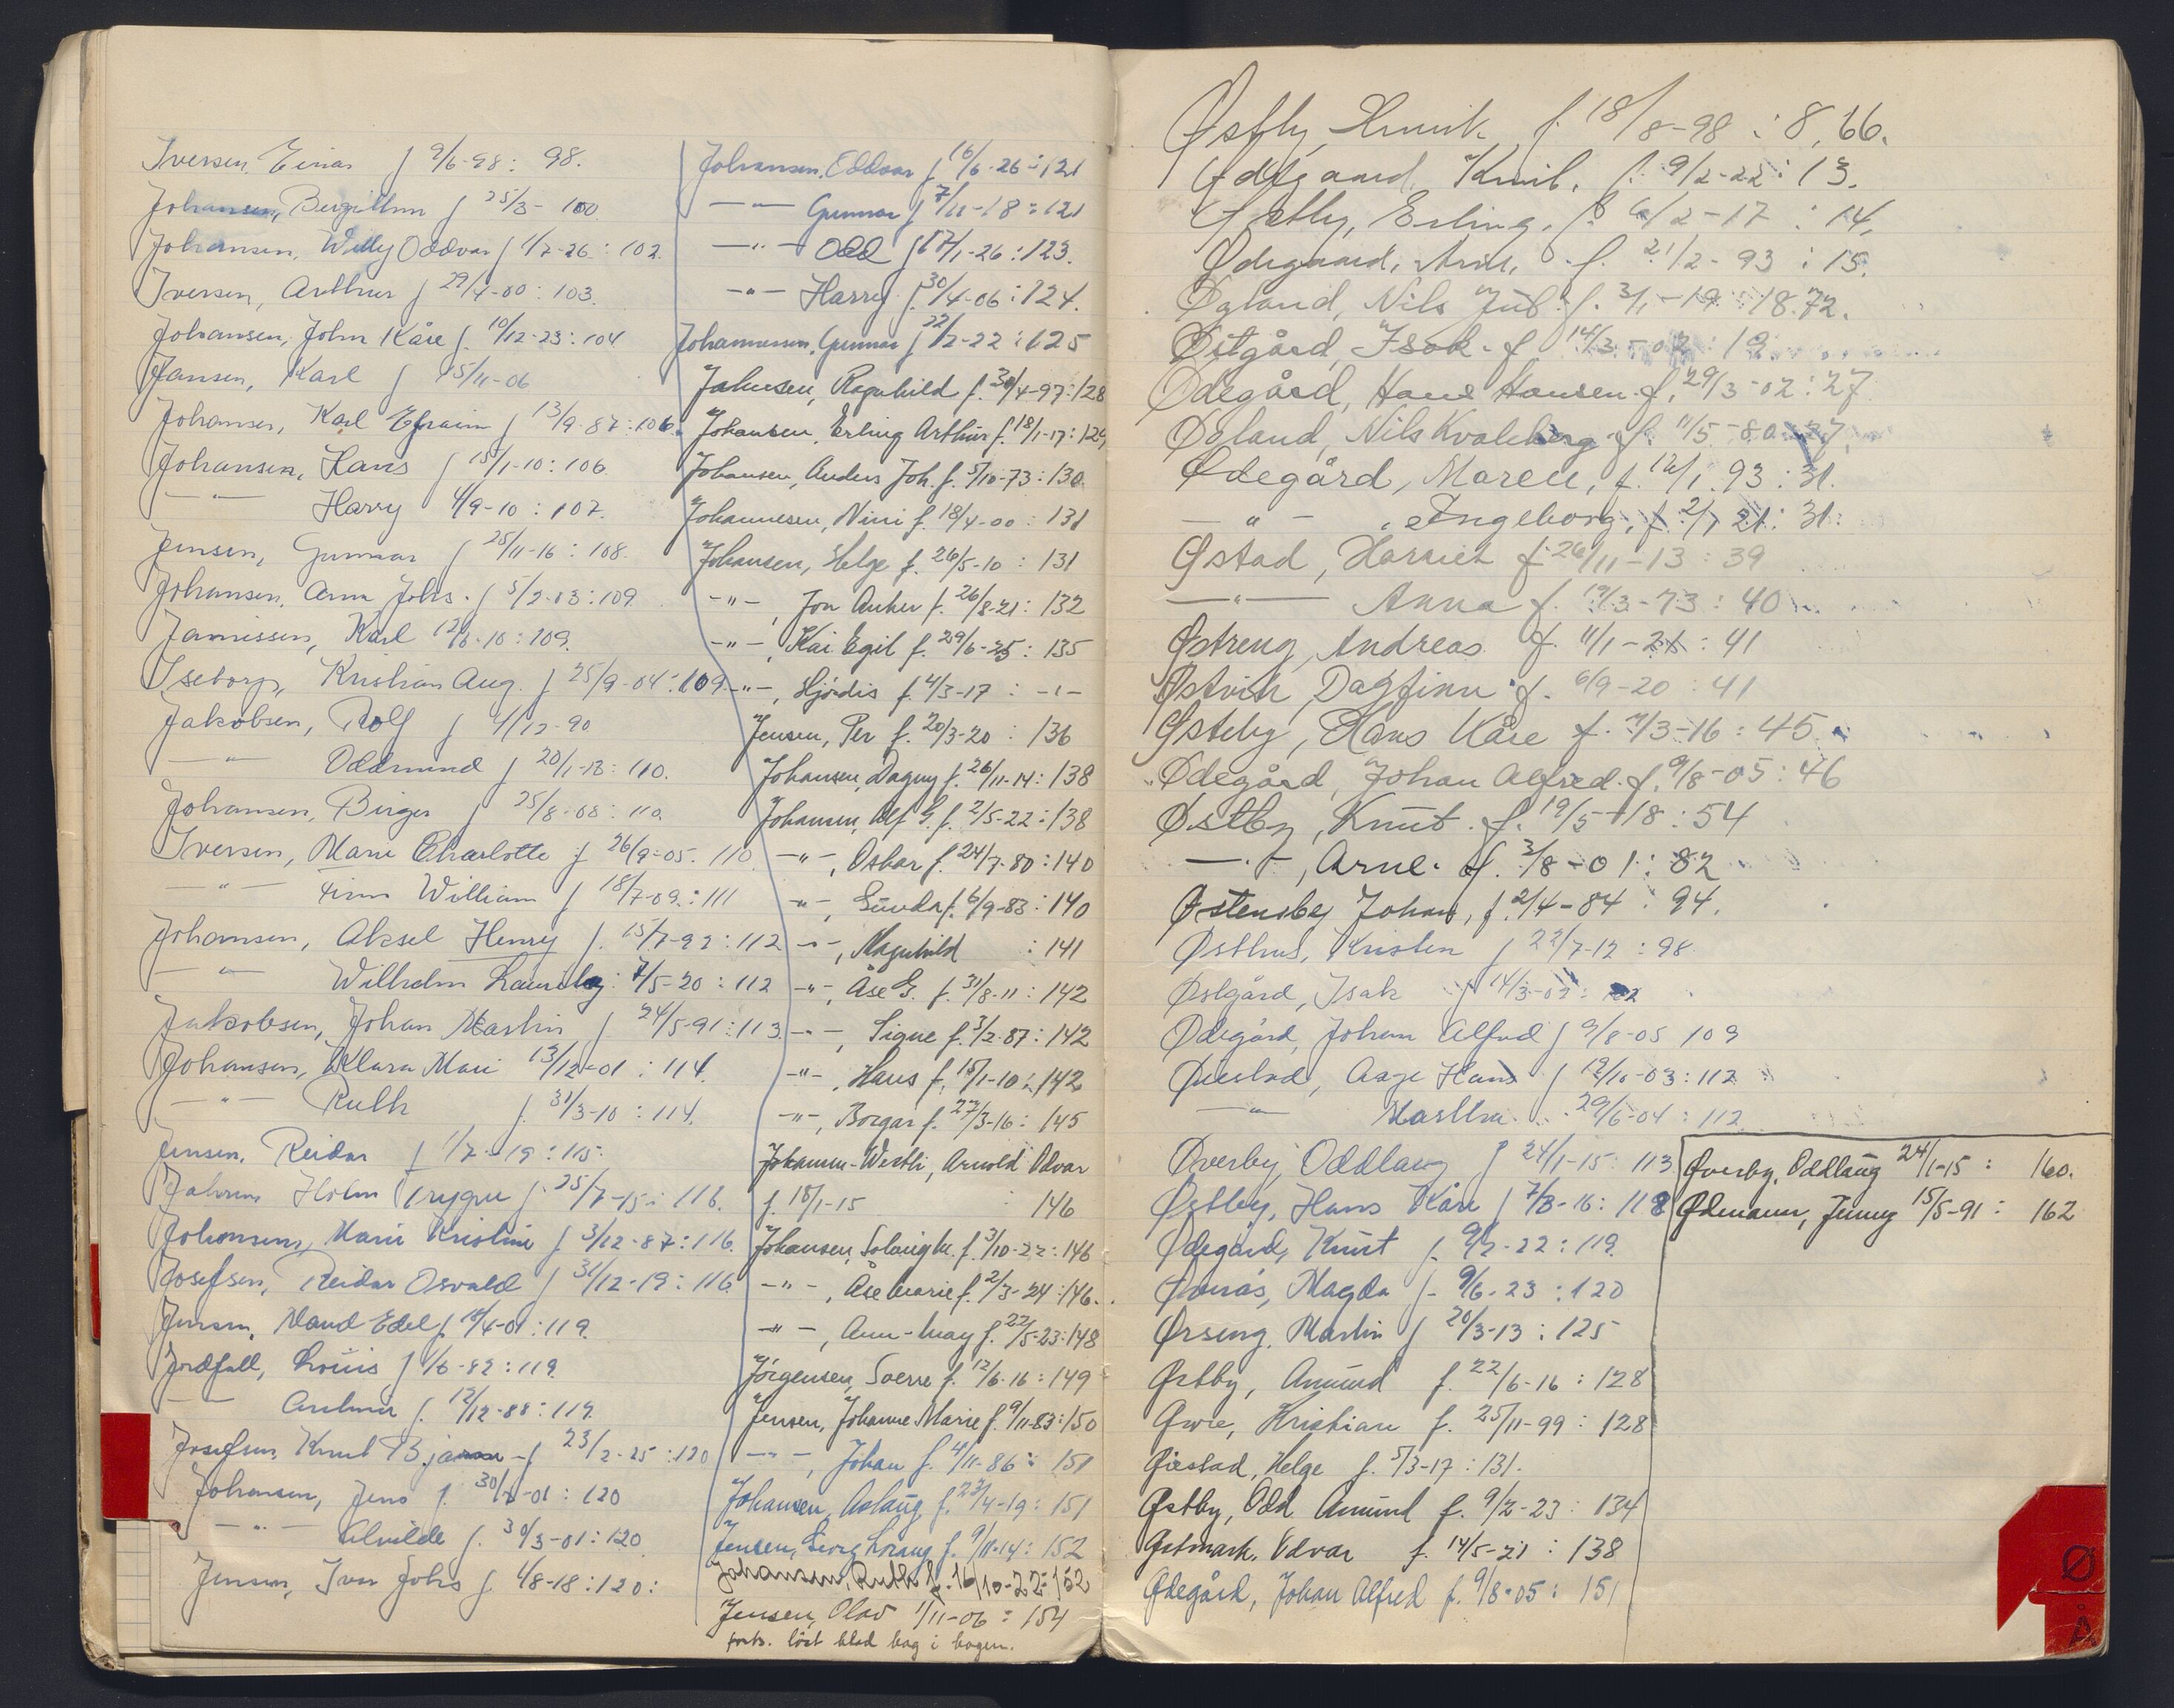 Iversen, Einar f 9/6-98: 98.
Johansen, Bergithon f 25/3- 100
Johansen, Willy Oddvar f 1/7-26: 102.
Iversen, Arthur f 29/4-00: 103.
Johansen, John Kåre f. 10/12-23: 104
Jansen, Karl f 15/11-06
Johansen, Karl Efraim f 13/9-87: 106.
Johansen, Hans f 15/1-10: 106.
— " — Harry 4/9-10: 107.
Jensen, Gunnar f 25/11-16: 108.
Johansen, Arne Johs. f 5/2-03: 109
Jamissen, Karl 12/8-10: 109.
Iseborp, Kristian Aug. f 25/9-04: 109.
Jakobsen, Rolf f 4/12-90
— " — Oddmund f 20/1-13: 110.
Johansen, Birger f 25/8-08: 110.
Iversen, Marie Charlotte f 26/9-05. 110
— " — Finn William f 18/7-09: 111
Johansen, Aksel Henry f. 15/7-92: 112
— " — Wilhelm 7/5-20: 112
Jakobsen, Johan Martin f 24/5-91: 113
Johansen, Klara Mari 13/12-01: 114.
— " — Ruth f. 31/3-10: 114.
Jensen, Reidar f 1/7-19: 115.
Holm Trygve f. 25/7-15: 116.
Johansen, Marie Kristine f 3/12-87: 116.
Josefsen, Reidar Osvald f 31/12-19: 116
Jensen, Maud Edel f. 10/4-01: 119.
Jordfall, Louis f 1/6-82: 119.
— " — f. 12/12-88: 119.
Josefsen, Knut Bjarne f 23/2-25: 120
Johansen, Jens f. 30/7-01: 120
— " — Alvilde f. 30/3-01: 120
Jensen, Ivar Johs f. 4/8-18: 120:
Johansen, Oddvar f 16/6-26: 121
— " — Gunnar f 7/11-18: 121
— " — Odd f 17/1-26: 123.
— " — Harry f. 30/4-06: 124.
Johannessen, Gunnar f 22/2-22: 125
Johnsen, Ragnhild f. 30/4-97: 128
Johansen, Erling Arthur f. 18/1-17: 129
Johansen, Anders Joh. f. 5/10-73: 130.
Johannesen, Nini f. 18/4-00: 131
Johansen, Helge f. 26/5-10: 131
— " —, Jon Anker f. 26/8-21: 132
— " —, Kai Egil f. 29/6-25: 135
— " —, Hjördis f. 4/3-17: -"-
Jensen, Per f. 20/3-20: 136
Johansen, Dagny f. 26/11-14: 138
Johansen, Alf G. f. 2/5-22: 138
— " —, Oskar f. 24/7-80: 140
— " —, Gunda f. 6/9-83: 140
— " —, Ragnhild : 141
— " —, Åse G. f. 31/8-11: 142
— " —, Signe f. 3/2-87: 142
— " —, Hans f. 15/1-10: 142
— " —, Borgar f. 27/3-16: 145
Johansen-Westli, Arnold Odvar
f. 18/1-15 146
Johansen, Solveig M. f. 3/10-22: 146
— " —, Åse Marie f. 2/3-24: 146.
— " —, Ann-May f. 22/5-23: 148
Jörgensen, Sverre f. 12/6-16: 149
Jensen, Johanne Marie f. 9/11-83: 150
— " —, Johan f. 4/11-86: 151
Johansen, Aslaug f. 23/4-19: 151
Jensen, Georg f. 9/11-14: 152
Johansen, Ruth f. 16/10-22: 152
Jensen, Olav 1/11-06: 154
forts. löst blad bag i bogen.
Østby, Henrik f. 18/8-98: 8,66.
Ødegaard, Knut. f. 9/2-22: 13.
Østby, Erling. f. 6/2-17: 14.
Ødegaard, Arne. f. 21/2-93: 15.
Øgland, Nils Jul. f. 3/1-19: 18.72.
Østgård, Isak. f 14/3-02: 19
Ødegård, Hans Hansen. f. 29/3-02: 27
Øgland, Nils Kvaleberg f. 11/5-80: 27
Ødegård, Maren, f. 12/1.93: 31.
— " —, Ingeborg, f. 2/7 21: 31.
Østad, Harriet f 26/11-13: 39
— " — Anna f. 19/3-73: 40
Østreng, Andreas f. 11/1-21: 41
Østvik, Dagfinn f. 6/9-20: 41
Østeby, Hans Kåre f. 7/3-16: 45
Ødegård, Johan Alfred. f. 9/8-05: 46
Østby, Knut. f. 19/5-18: 54
— " —, Arne. f. 3/8-01: 82
Østensby Johan, f. 2/4-84: 94.
Østhus, Kristen f 22/7-12: 98
Østgård, Isak f 14/3-02: 102
Ødegård, Johan Alfred f 9/8-05 109
Øiestad, Aage Hans f 19/10-03: 112
— " — Martha 29/6-04: 112
Øverby, Oddlaug f 24/1-15: 113
Østby, Hans Kåre f 7/3-16: 118
Ødegård, Knut f. 9/2-22: 119.
Magda f. 9/6-23: 120
Ørseng, Martin f 20/3-13: 125
Østby, Amund f. 22/6-16: 128
Øwre, Kristian f. 25/11-99: 128
Øiestad, Helge f. 5/3-17: 131.
Østby, Odd Amund f. 9/2-23: 134
Østmark, Odvar f. 14/5-21: 138
Ødegård, Johan Alfred f. 9/8-05: 151
Øverby, Oddlaug 24/1-15: 160.
Ødemann, Jenny 15/5-91: 162
Ø
Å